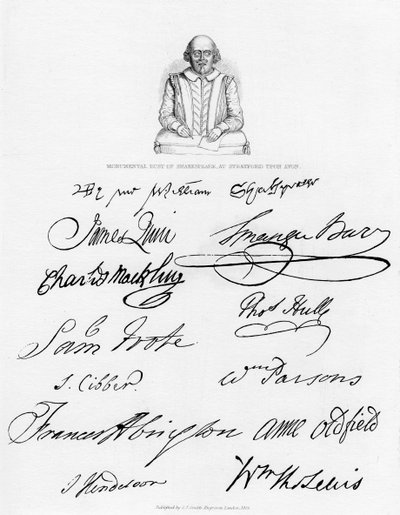 MONUMENTAL BUST OF SHAKESPEARE, AT STRATFORD UPON AVON.
By me William Shakspeare
James Quin
Spranger Barry
Charles Macklin
Thos Hull
Sam Foote
S. Cibber
Wm Parsons
Frances Abington
Anne Oldfield
J Henderson
Wm Tho Lewis
Published by London,